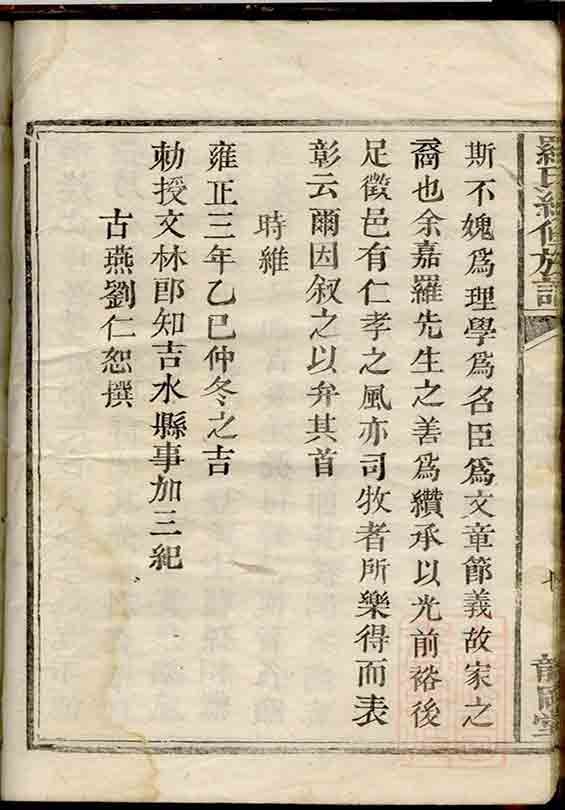 斯不媿爲理學爲名臣爲文章節義故家之
裔也余嘉羅先生之善爲纘承以光前裕後
足徵邑有仁孝之風亦司牧者所樂得而表
彰云爾因叙之以弁其首
時維
雍正三年乙巳仲冬之吉
勅授文林郎知吉水縣事加三紀
古燕劉仁恕撰